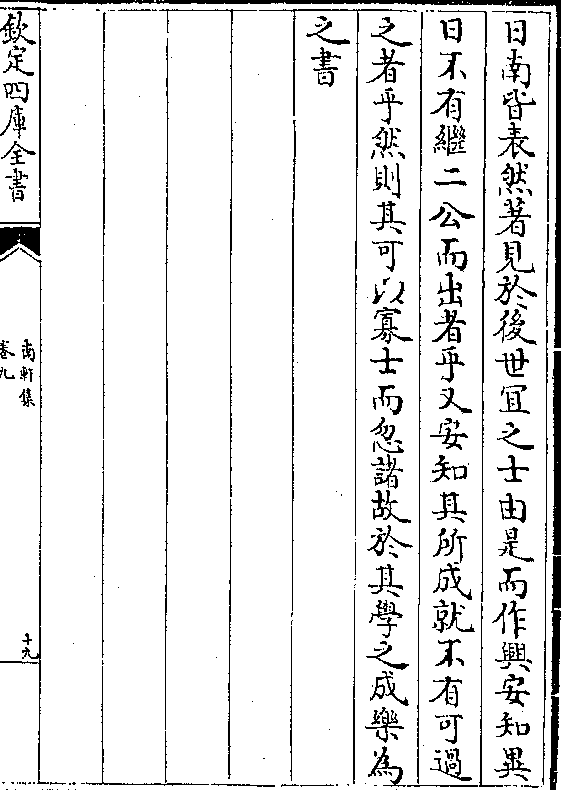 日南皆表然著見於後世宜之士由是而作興安知異
日不有繼二公而出者乎又安知其所成就不有可過
之者乎然則其可以寡士而忽諸故於其學之成樂為
之書
欽定四庫全書
南軒集
卷九
十九